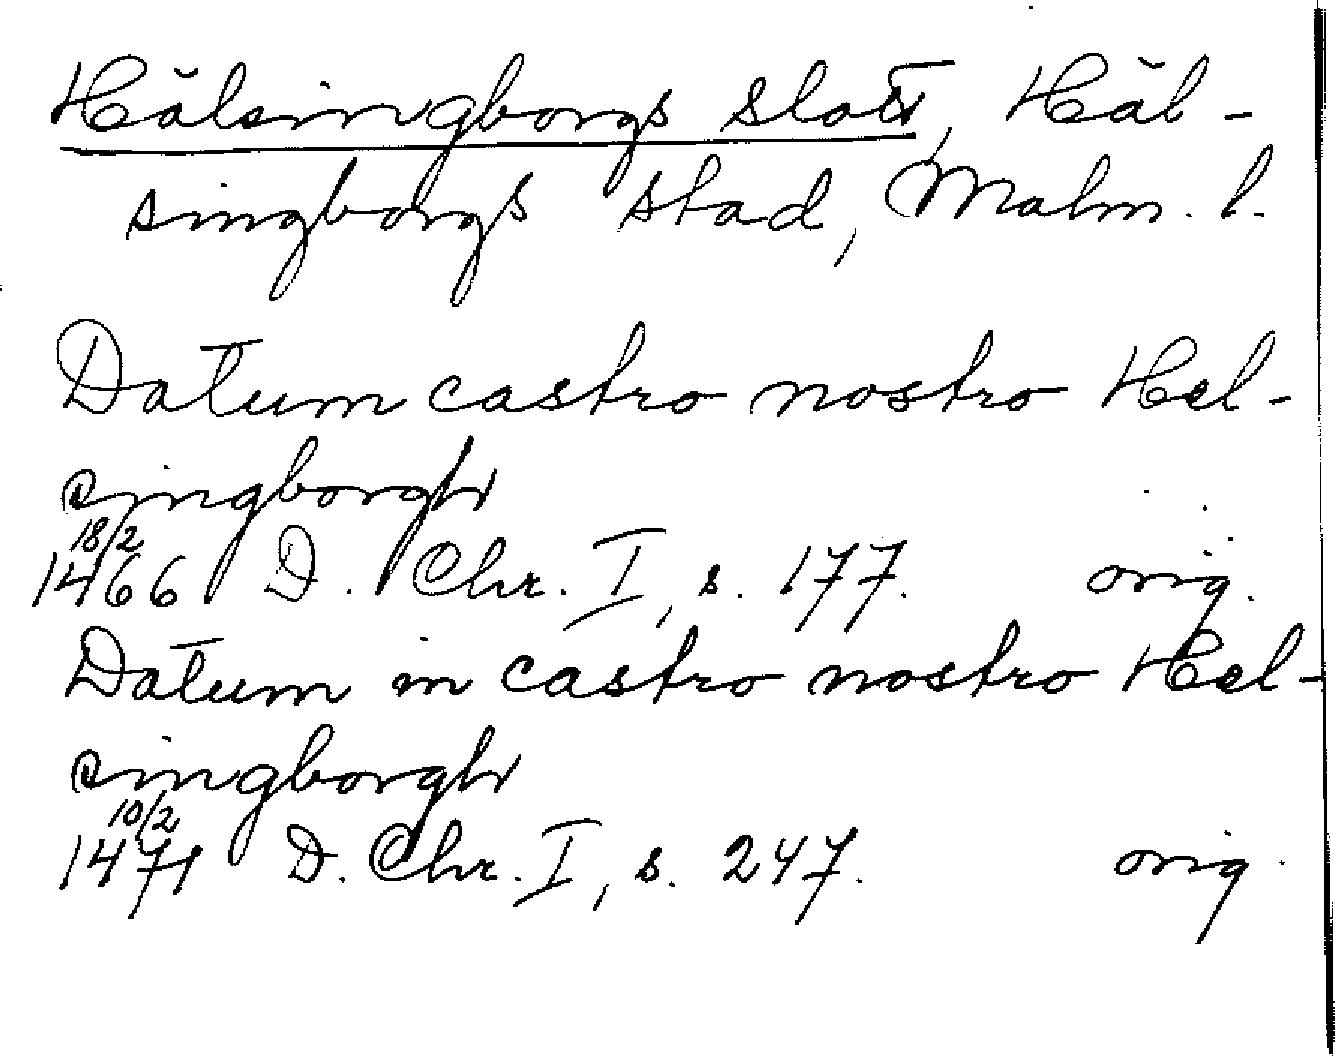 Hälsingborgs slott, Häl-
singborgs stad, Malm. l.
Datum castro nostro Hel-
singborgh
18/2
1466 D. Chr. I, s. 177. orig.
Datum in castro nostro Hel-
singborgh
10/2
1471 D. Chr. I, s. 247. orig.